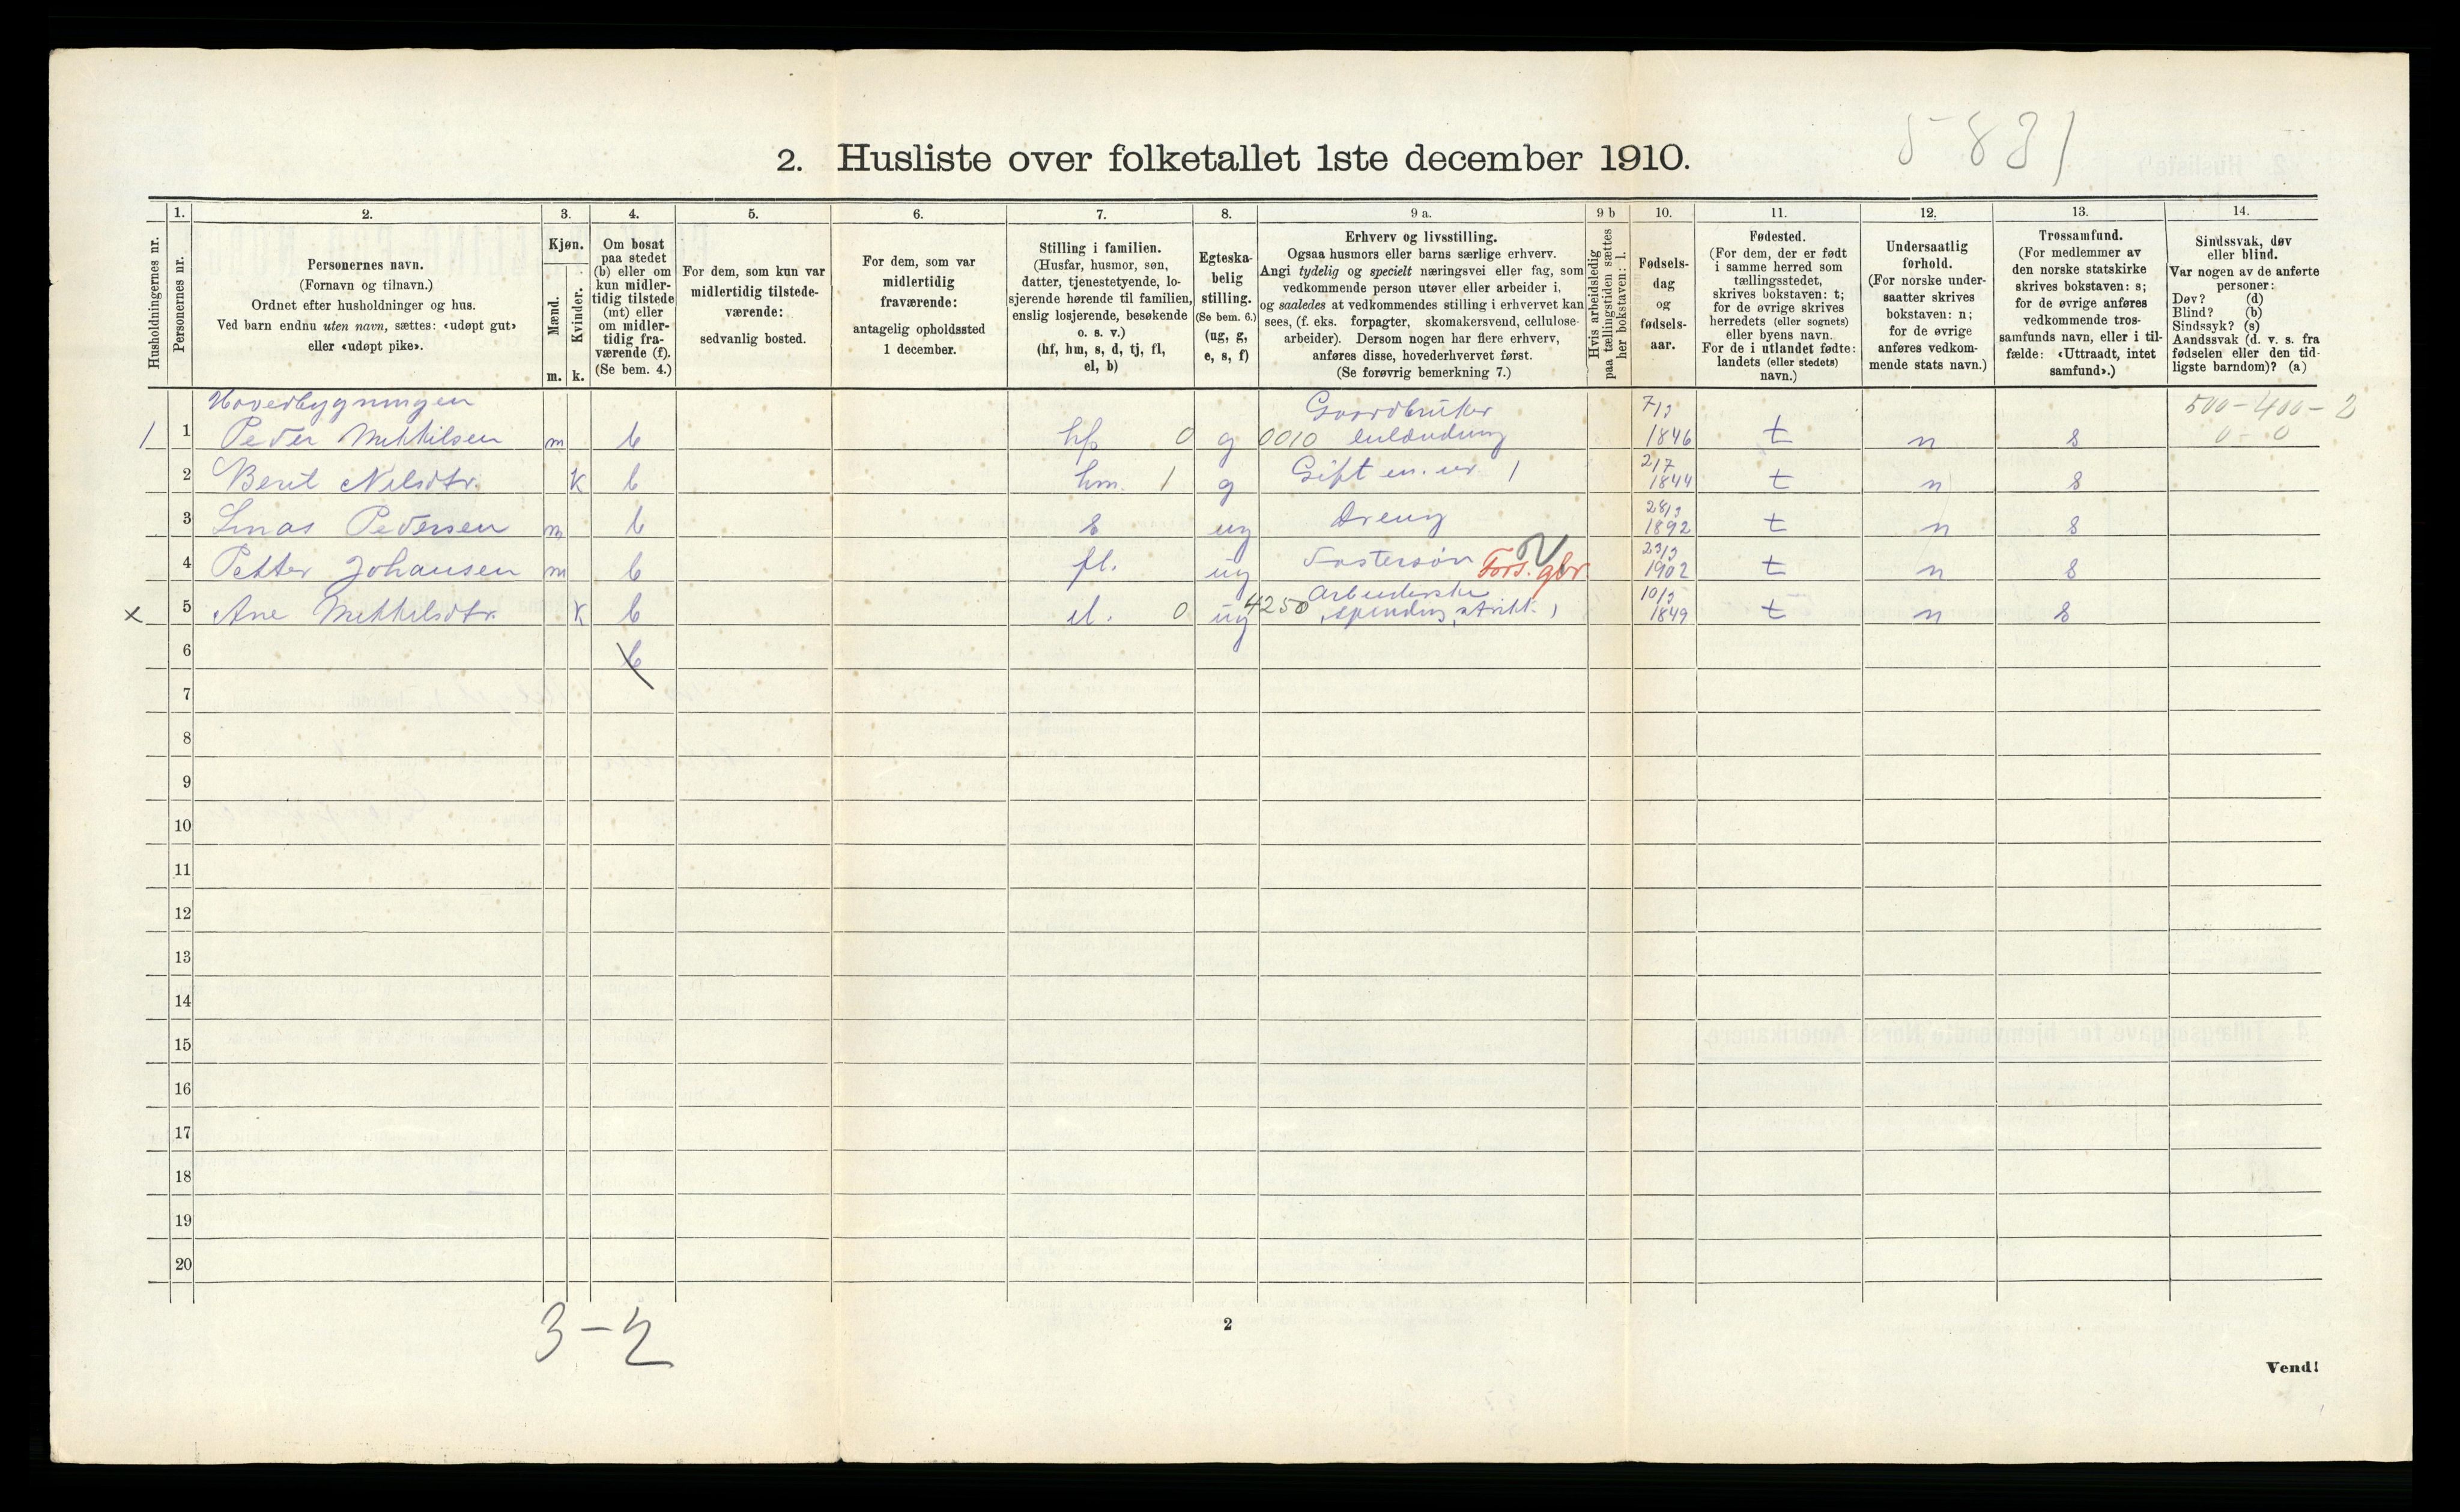 5831
2. Husliste over folketallet 1ste december 1910.
Husholdningernes nr.
1.
Personernes nr.
2.
Personernes navn.
(Fornavn og tilnavn.)
Ordnet efter husholdninger og hus.
Ved barn endnu uten navn, sættes: «udøpt gut»
eller «udøpt pike».
3.
Kjøn.
Mænd.
Kvinder.
m. k.
4.
Om bosat
paa stedet
(b) eller om
kun midler-
tidig tilstede
(mt) eller
om midler-
tidig fra-
værende (f).
(Se bem. 4.)
5.
For dem, som kun var
midlertidig tilstede-
værende:
sedvanlig bosted.
6.
For dem, som var
midlertidig
fraværende:
antagelig opholdssted
1 december.
7.
Stilling i familien.
(Husfar, husmor, søn,
datter, tjenestetyende, lo-
sjerende hørende til familien,
enslig losjerende, besøkende
o. s. v.)
(hf, hm, s, d, tj, fl,
el, b)
8.
Egteska-
belig
stilling.
(Se bem. 6.)
(ug, g,
e, s, f)
9 a.
Erhverv og livsstilling.
Ogsaa husmors eller barns særlige erhverv.
Angi tydelig og specielt næringsvei eller fag, som
vedkommende person utøver eller arbeider i,
og saaledes at vedkommendes stilling i erhvervet kan
sees, (f. eks. forpagter, skomakersvend, cellulose-
arbeider). Dersom nogen har flere erhverv,
anføres disse, hovederhvervet først.
(Se forøvrig bemerkning 7.)
9 b
Hvis arbeidsledig
paa tællingstiden sættes
her bokstaven: l.
10.
Fødsels-
dag
og
fødsels-
aar.
11.
Fødested.
(For dem, der er født
i samme herred som
tællingsstedet,
skrives bokstaven: t;
for de øvrige skrives
herredets (eller sognets)
eller byens navn.
For de i utlandet fødte:
landets (eller stedets)
navn.)
12.
Undersaatlig
forhold.
(For norske under-
saatter skrives
bokstaven: n;
for de øvrige
anføres vedkom-
mende stats navn.)
13.
Trossamfund.
(For medlemmer av
den norske statskirke
skrives bokstaven: s;
for de øvrige anføres
vedkommende tros-
samfunds navn, eller i til-
fælde: «Uttraadt, intet
samfund».)
14.
Sindssvak, døv
eller blind.
Var nogen av de anførte
personer:
Døv? (d)
Blind? (b)
Sindssyk? (s)
Aandssvak (d. v. s. fra
fødselen eller den tid-
ligste barndom)? (a)
Hovedbygningen Gaardbruker 7/3 500-400-2
1 1 Peder Mikkilsen m b hf 0 g 0010 1846 t n s 0-0
2 Berit Nilsdtr. k b hm. 1 g Gift 1 2/7 1844 t n s
3 Pedersen m b s ug Dreng 28/3 1892 t n s
4 Petter Johansen m b fl. ug Fostersøn Fors. gbr. 1902 t n s
x 5 Ane Mikkilsdtr. k b el. 0 ug 4250 Arbeiderske 10/3 1849 t n s
6 b
7
8
9
10
11
12
13
14
15
16
17
18
19
20
3-2
2
Vend!